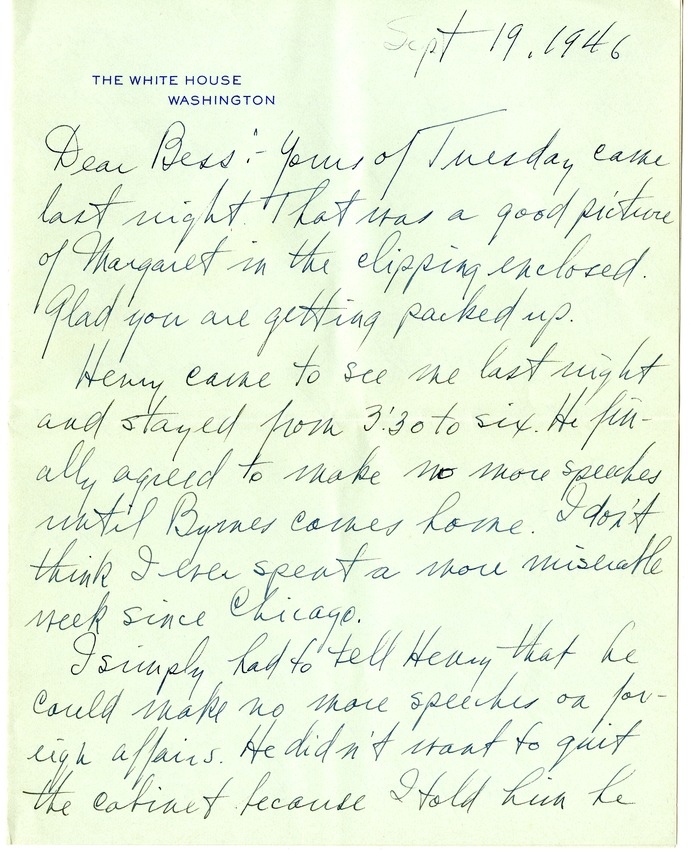 Sept 19, 1946
THE WHITE HOUSE
WASHINGTON
Dear Bess:- Yours of Tuesday came
last night. That was a good picture
of Margaret in the clipping enclosed.
Glad you are getting packed up.
Henry came to see me last night
and stayed from 3:30 to six. He fin-
ally agreed to make no more speeches
until Byrnes comes home. I don't
think I ever spent a more miserable
week since Chicago.
I simply had to tell Henry that he
could make no more speeches on for-
eign affairs. He didn't want to quit
the cabinet because I told him he